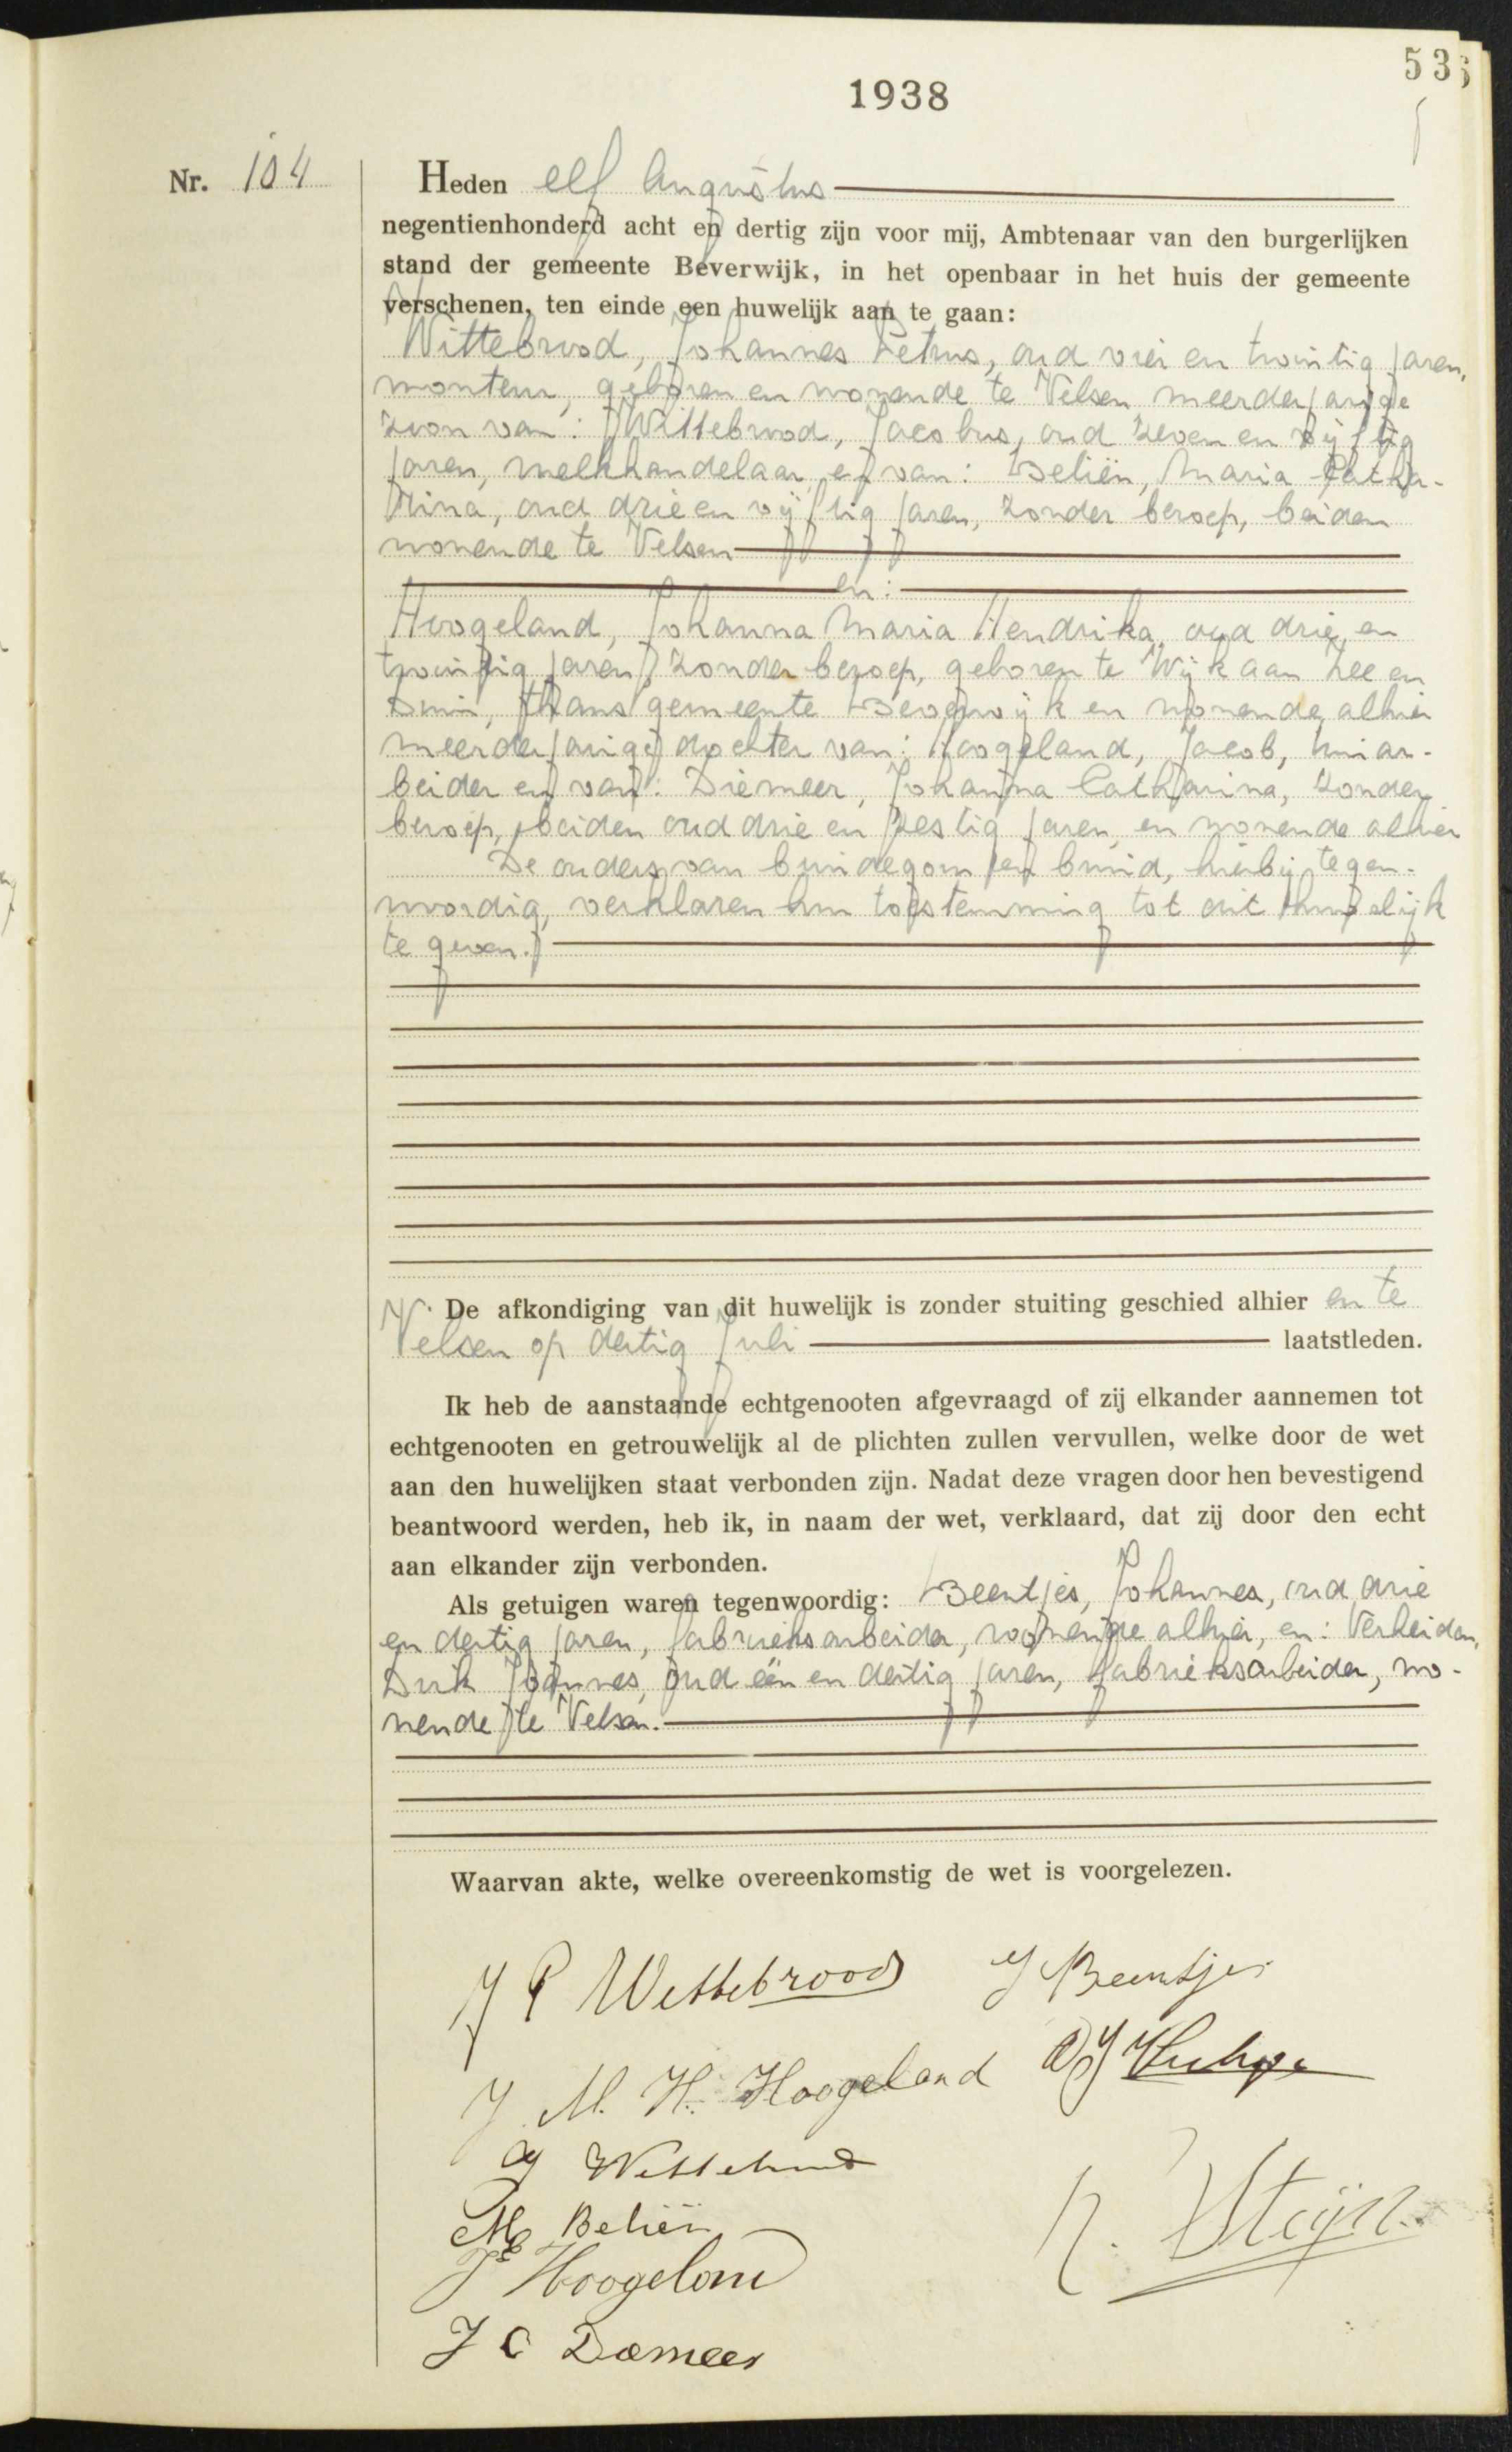 536
1938
Nr. 104
Heden elf Augustus
negentienhonderd acht en dertig zijn voor mij, Ambtenaar van den burgerlijken
stand der gemeente Beverwijk, in het openbaar in het huis der gemeente
verschenen, ten einde een huwelijk aan te gaan:
Wittebrood, Johannes Petrus, oud vier en twintig jaren,
monteur, geboren en wonende te Velsen meerderjarige
zoon van: Wittebrood, Jacobus, oud zeven en vijftig
jaren, melkhandelaar, en van: Beliën, Maria Catha-
rina, oud drie en vijftig jaren, zonder beroep, beiden
wonende te Velsen
en:
Hoogeland, Johanna Maria Hendrika, oud drie en
twintig jaren, zonder beroep, geboren te Wijk aan Zee en
Duin, thans gemeente Beverwijk en wonende alhier
meerderjarige dochter van: Hoogeland, Jacob, tuinar-
beider en van: Diemeer, Johanna Catharina, zonder
beroep, beiden oud drie en zestig jaren, en wonende alhier
De ouders van bruidegom en bruid, hierbij tegen-
woordig, verklaren hun toestemming tot dit huwelijk
te geven.
De afkondiging van dit huwelijk is zonder stuiting geschied alhier en te
Velsen op dertig Juli laatstleden.
Ik heb de aanstaande echtgenooten afgevraagd of zij elkander aannemen tot
echtgenooten en getrouwelijk al de plichten zullen vervullen, welke door de wet
aan den huwelijken staat verbonden zijn. Nadat deze vragen door hen bevestigend
beantwoord werden, heb ik, in naam der wet, verklaard, dat zij door den echt
aan elkander zijn verbonden.
Als getuigen waren tegenwoordig: Beentjes, Johannes, oud drie
en dertig jaren, fabrieksarbeider, wonende alhier, en: Verheiden,
Dirk Joannes, oud één en dertig jaren, fabrieksarbeider, wo-
nende te Velsen.
Waarvan akte, welke overeenkomstig de wet is voorgelezen.
J P Wittebrood J Beentjes
J. M. H. Hoogeland D J
J Wittebrood
M C Beliën
J Hoogeland
J C Diemeer